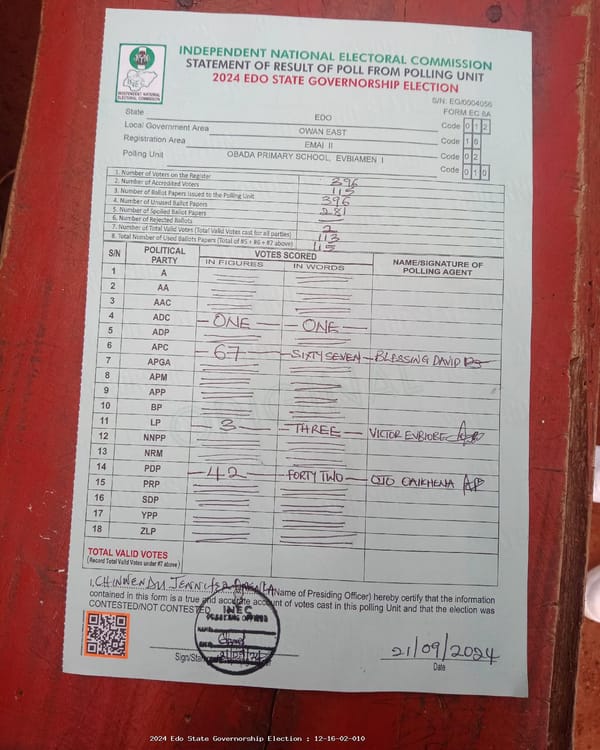 INDEPENDENT NATIONAL ELECTORAL COMMISSION
STATEMENT OF RESULT OF POLL FROM POLLING UNIT
2024 EDO STATE GOVERNORSHIP ELECTION
INEC
INDEPENDENT NATIONAL
ELECTORAL COMMISSION
S/N: EG/0004056
FORM EC 8A
State EDO Code 012
Local Government Area OWAN EAST Code 16
Registration Area EMAI II Code 02
Polling Unit OBADA PRIMARY SCHOOL, EVBIAMEN I Code 010
1. Number of Voters on the Register 396
2. Number of Accredited Voters 115
3. Number of Ballot Papers Issued to the Polling Unit 396
4. Number of Unused Ballot Papers 281
5. Number of Spoiled Ballot Papers —
6. Number of Rejected Ballots 2
7. Number of Total Valid Votes (Total Valid Votes cast for all parties) 113
8. Total Number of Used Ballots Papers (Total of #5 + #6 + #7 above) 115
S/N POLITICAL PARTY VOTES SCORED NAME/SIGNATURE OF POLLING AGENT
IN FIGURES IN WORDS
1 A
2 AA
3 AAC
4 ADC ONE ONE
5 ADP
6 APC 67 SIXTY SEVEN BLESSING DAVID
7 APGA
8 APM
9 APP
10 BP
11 LP 3 THREE VICTOR
12 NNPP
13 NRM
14 PDP 42 FORTY TWO OJO OAIKHENA
15 PRP
16 SDP
17 YPP
18 ZLP
TOTAL VALID VOTES
(Record Total Valid Votes under #7 above)
I, CHINWENDU JENNIFER (Name of Presiding Officer) hereby certify that the information
contained in this form is a true and accurate account of votes cast in this polling Unit and that the election was
CONTESTED/NOT CONTESTED
INEC
PRESIDING OFFICER
21/09/24
21/09/2024
Date
2024 Edo State Governorship Election : 12-16-02-010